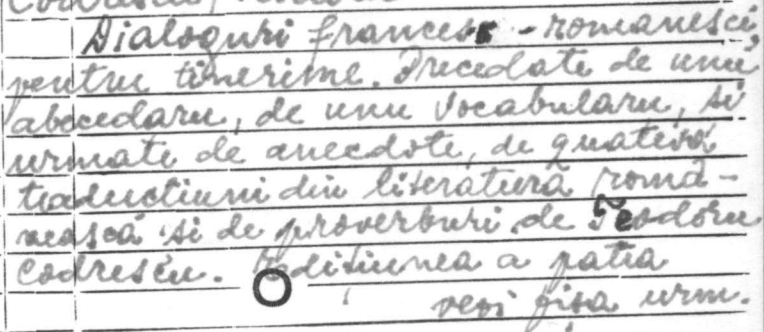 Dialoguri francese-romanesci,
pentru tinerime. Precedate de unu
abecedaru, de unu vocabularu, si
urmate de anecdote, de quateva
traductiuni din literatura româ-
nească si de proverburi de Teodoru
Codrescu. Editiunea a patra
vezi fisa urm.